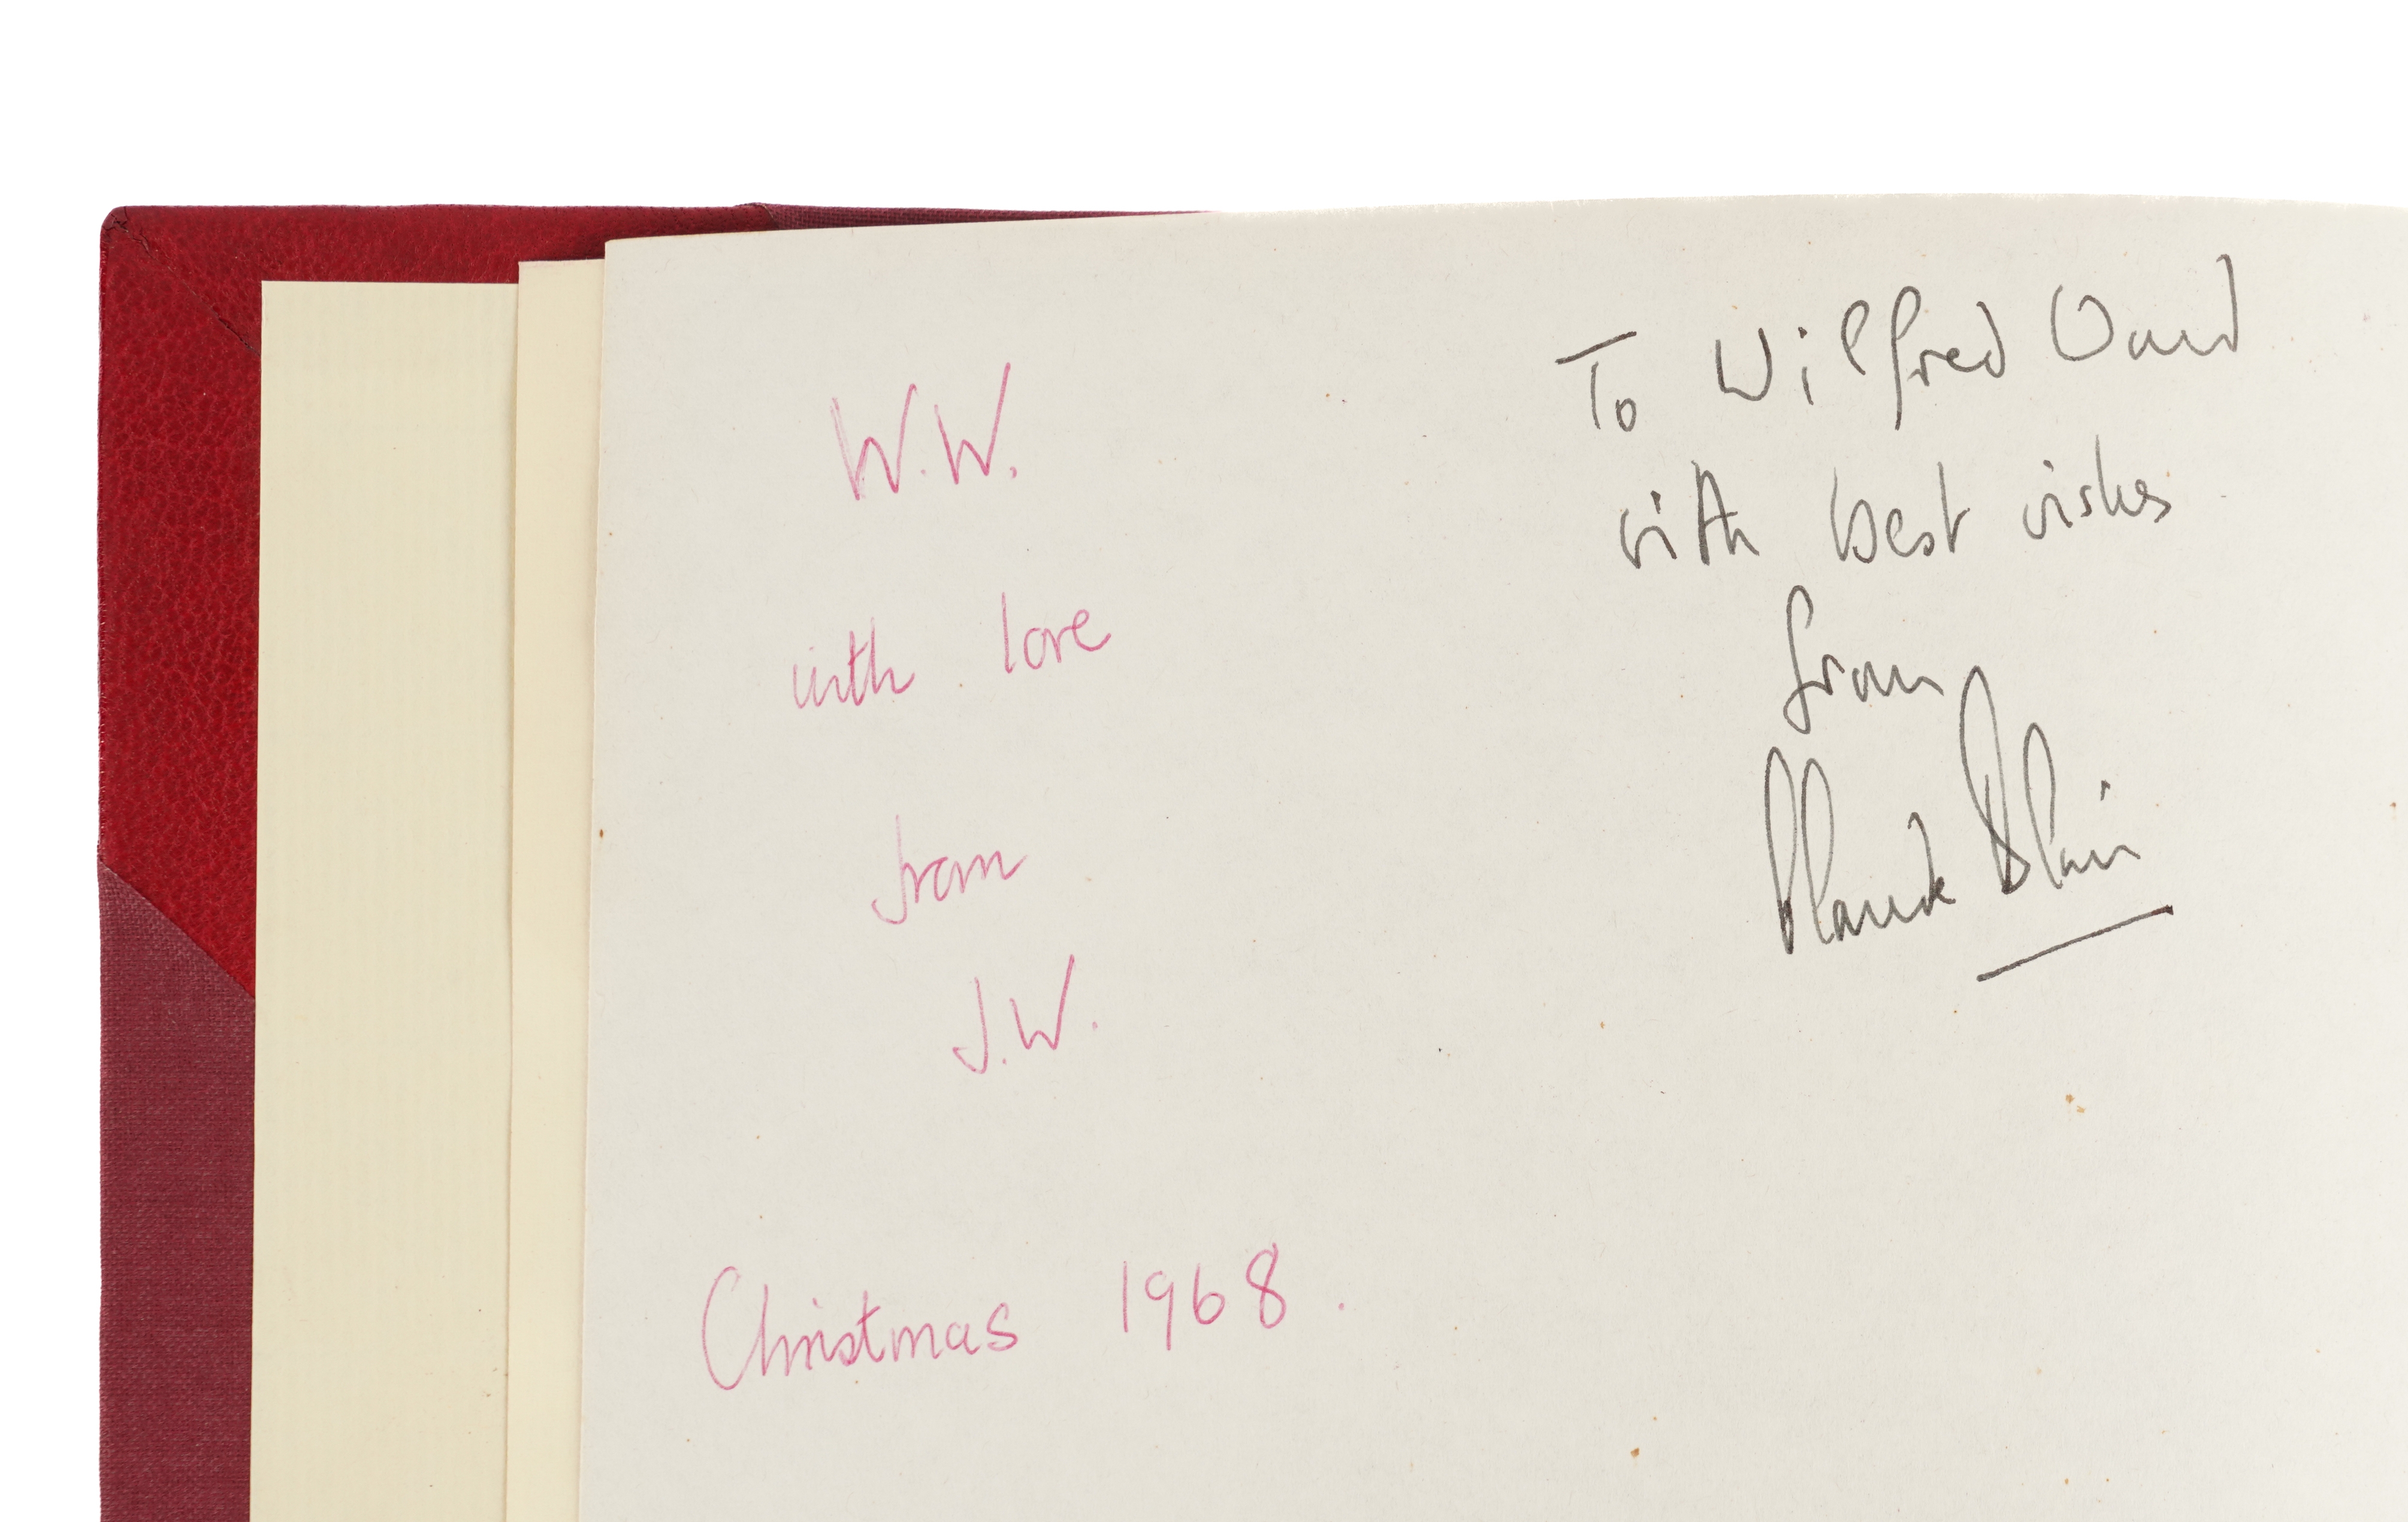 W.W.
with love
from
J.W.
Christmas 1968.
To Wilfred Ward
with best wishes
from
Claude Blair